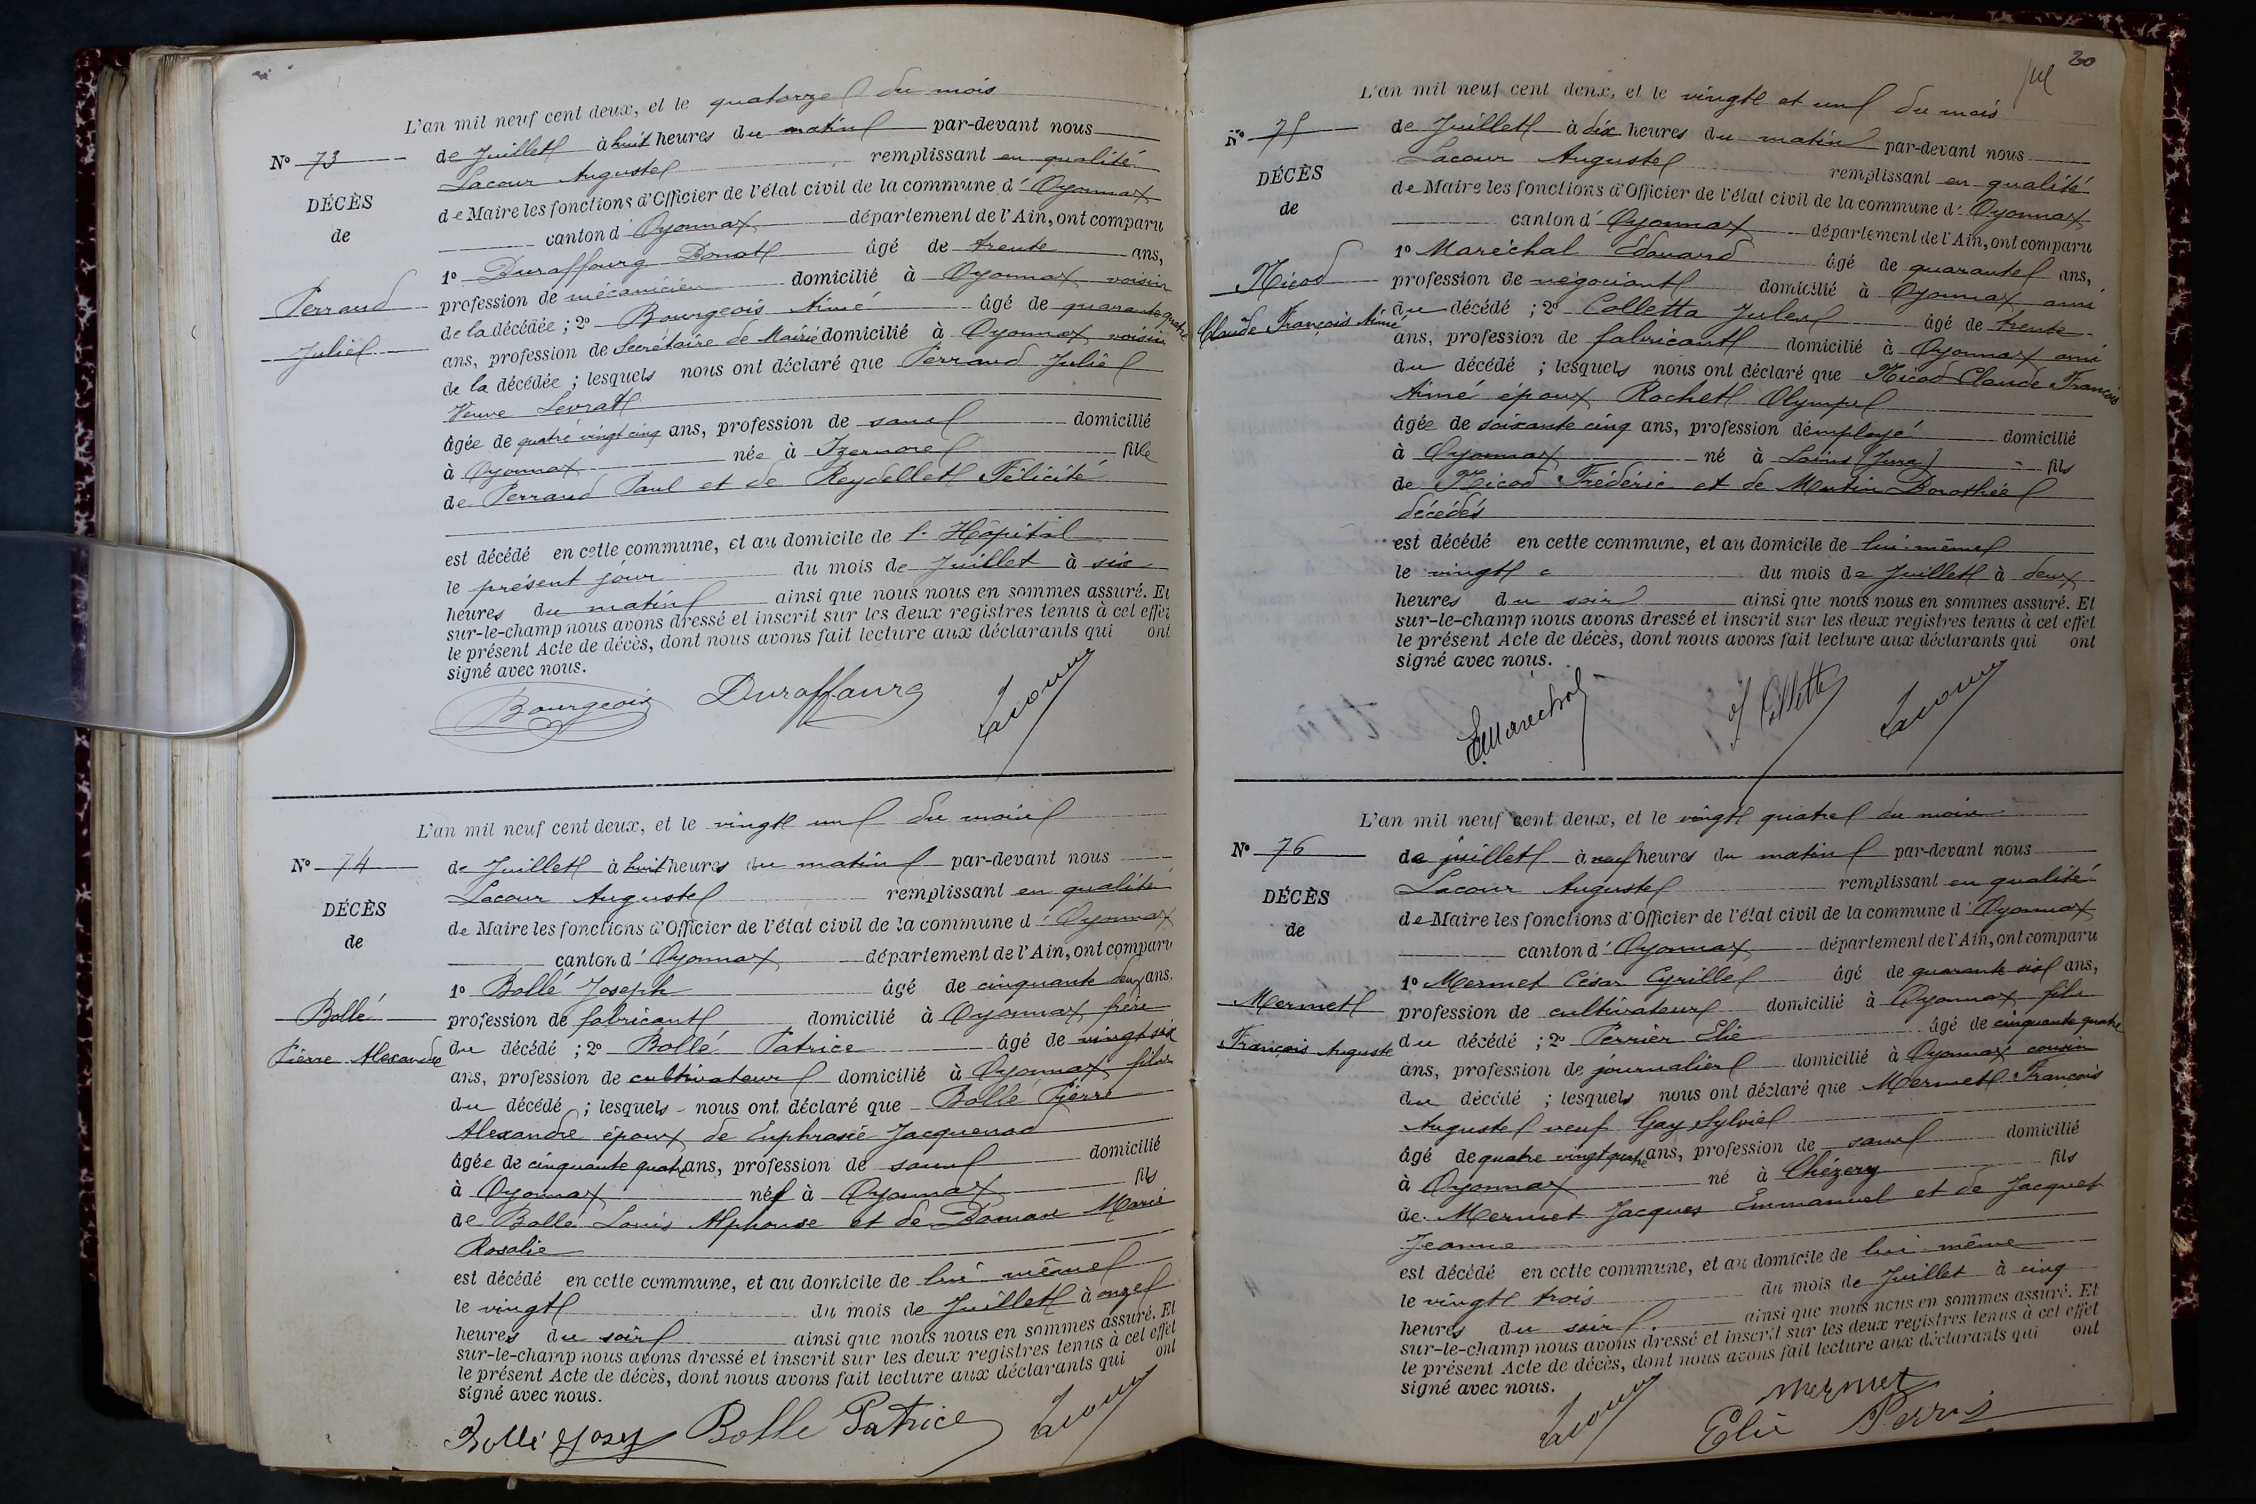 L'an mil neuf cent deux, et le quatorze du mois
No 73
de Juillet à huit heures du matin par-devant nous
Lacour Auguste remplissant en qualité
DÉCÈS
de Maire les fonctions d'Officier de l'état civil de la commune d'Oyonnax
de
canton d'Oyonnax département de l'Ain, ont comparu
1o Duraffourg Donat âgé de trente ans,
Perraud
profession de mécanicien domicilié à Oyonnax voisin
de la décédée ; 2o Bourgeois Aimé âgé de quarante quatre
Julie
ans, profession de Secrétaire de Mairie domicilié à Oyonnax voisin
de la décédée ; lesquels nous ont déclaré que Perraud Julie
Veuve Levrat
âgée de quatre vingt cinq ans, profession de sans domicilié
à Oyonnax née à Izernore fille
de Perraud Paul et de Reydellet Félicité
est décédé en cette commune, et au domicile de l'Hôpital
le présent jour du mois de Juillet à six
heures du matin ainsi que nous nous en sommes assuré. Et
sur-le-champ nous avons dressé et inscrit sur les deux registres tenus à cet effet
le présent Acte de décès, dont nous avons fait lecture aux déclarants qui ont
signé avec nous.
Bourgeois Duraffourg Lacour
L'an mil neuf cent deux, et le vingt un du mois
No 74
de Juillet à huit heures du matin par-devant nous
Lacour Auguste remplissant en qualité
DÉCÈS
de Maire les fonctions d'Officier de l'état civil de la commune d'Oyonnax
de
canton d'Oyonnax département de l'Ain, ont comparu
1o Bollé Joseph âgé de cinquante deux ans,
Bollé
profession de fabricant domicilié à Oyonnax frère
Pierre Alexandre
du décédé ; 2o Bollé Patrice âgé de vingt six
ans, profession de cultivateur domicilié à Oyonnax fils
du décédé ; lesquels nous ont déclaré que Bollé Pierre
Alexandre époux de Euphrasie Jacquenod
âgée de cinquante quatre ans, profession de sans domicilié
à Oyonnax né à Oyonnax fils
de Bollé Louis Alphonse et de Daman Marie
Rosalie
est décédé en cette commune, et au domicile de lui même
le vingt du mois de Juillet à onze
heures du soir ainsi que nous nous en sommes assuré. Et
sur-le-champ nous avons dressé et inscrit sur les deux registres tenus à cet effet
le présent Acte de décès, dont nous avons fait lecture aux déclarants qui ont
signé avec nous.
Bollé Josep Bolle Patrice Lacour
20
L'an mil neuf cent deux, et le vingt et un du mois
No 75
de Juillet à dix heures du matin par-devant nous
Lacour Auguste remplissant en qualité
DÉCÈS
de Maire les fonctions d'Officier de l'état civil de la commune d'Oyonnax
de
canton d'Oyonnax département de l'Ain, ont comparu
1o Maréchal Edouard âgé de quarante ans,
Nicod
profession de négociant domicilié à Oyonnax ami
Claude François Aimé
du décédé ; 2o Colletta Jules âgé de trente
ans, profession de fabricant domicilié à Oyonnax ami
du décédé ; lesquels nous ont déclaré que Nicod Claude François
Aimé époux Rochet Olympe
âgée de soixante cinq ans, profession d'employé domicilié
à Oyonnax né à Salins (Jura) fils
de Nicod Frédéric et de Mutin Dorothée
décédés
est décédé en cette commune, et au domicile de lui-même
le vingt du mois de Juillet à deux
heures du soir ainsi que nous nous en sommes assuré. Et
sur-le-champ nous avons dressé et inscrit sur les deux registres tenus à cet effet
le présent Acte de décès, dont nous avons fait lecture aux déclarants qui ont
signé avec nous.
E. Maréchal J Colletta Lacour
L'an mil neuf cent deux, et le vingt quatre du mois
No 76
de juillet à neuf heures du matin par-devant nous
Lacour Auguste remplissant en qualité
DÉCÈS
de Maire les fonctions d'Officier de l'état civil de la commune d'Oyonnax
de
canton d'Oyonnax département de l'Ain, ont comparu
1o Mermet César Cyrille âgé de quarante six ans,
Mermet
profession de cultivateur domicilié à Oyonnax fils
François Auguste
du décédé ; 2o Perrier Elie âgé de cinquante quatre
ans, profession de journalier domicilié à Oyonnax cousin
du décédé ; lesquels nous ont déclaré que Mermet François
Auguste veuf Gay Sylvie
âgé de quatre vingt quatre ans, profession de sans domicilié
à Oyonnax né à Chézery fils
de Mermet Jacques Emmanuel et de Jacquet
Jeanne
est décédé en cette commune, et au domicile de lui même
le vingt trois du mois de Juillet à cinq
heures du soir ainsi que nous nous en sommes assuré. Et
sur-le-champ nous avons dressé et inscrit sur les deux registres tenus à cet effet
le présent Acte de décès, dont nous avons fait lecture aux déclarants qui ont
signé avec nous.
Mermet
Lacour Elie Perrié